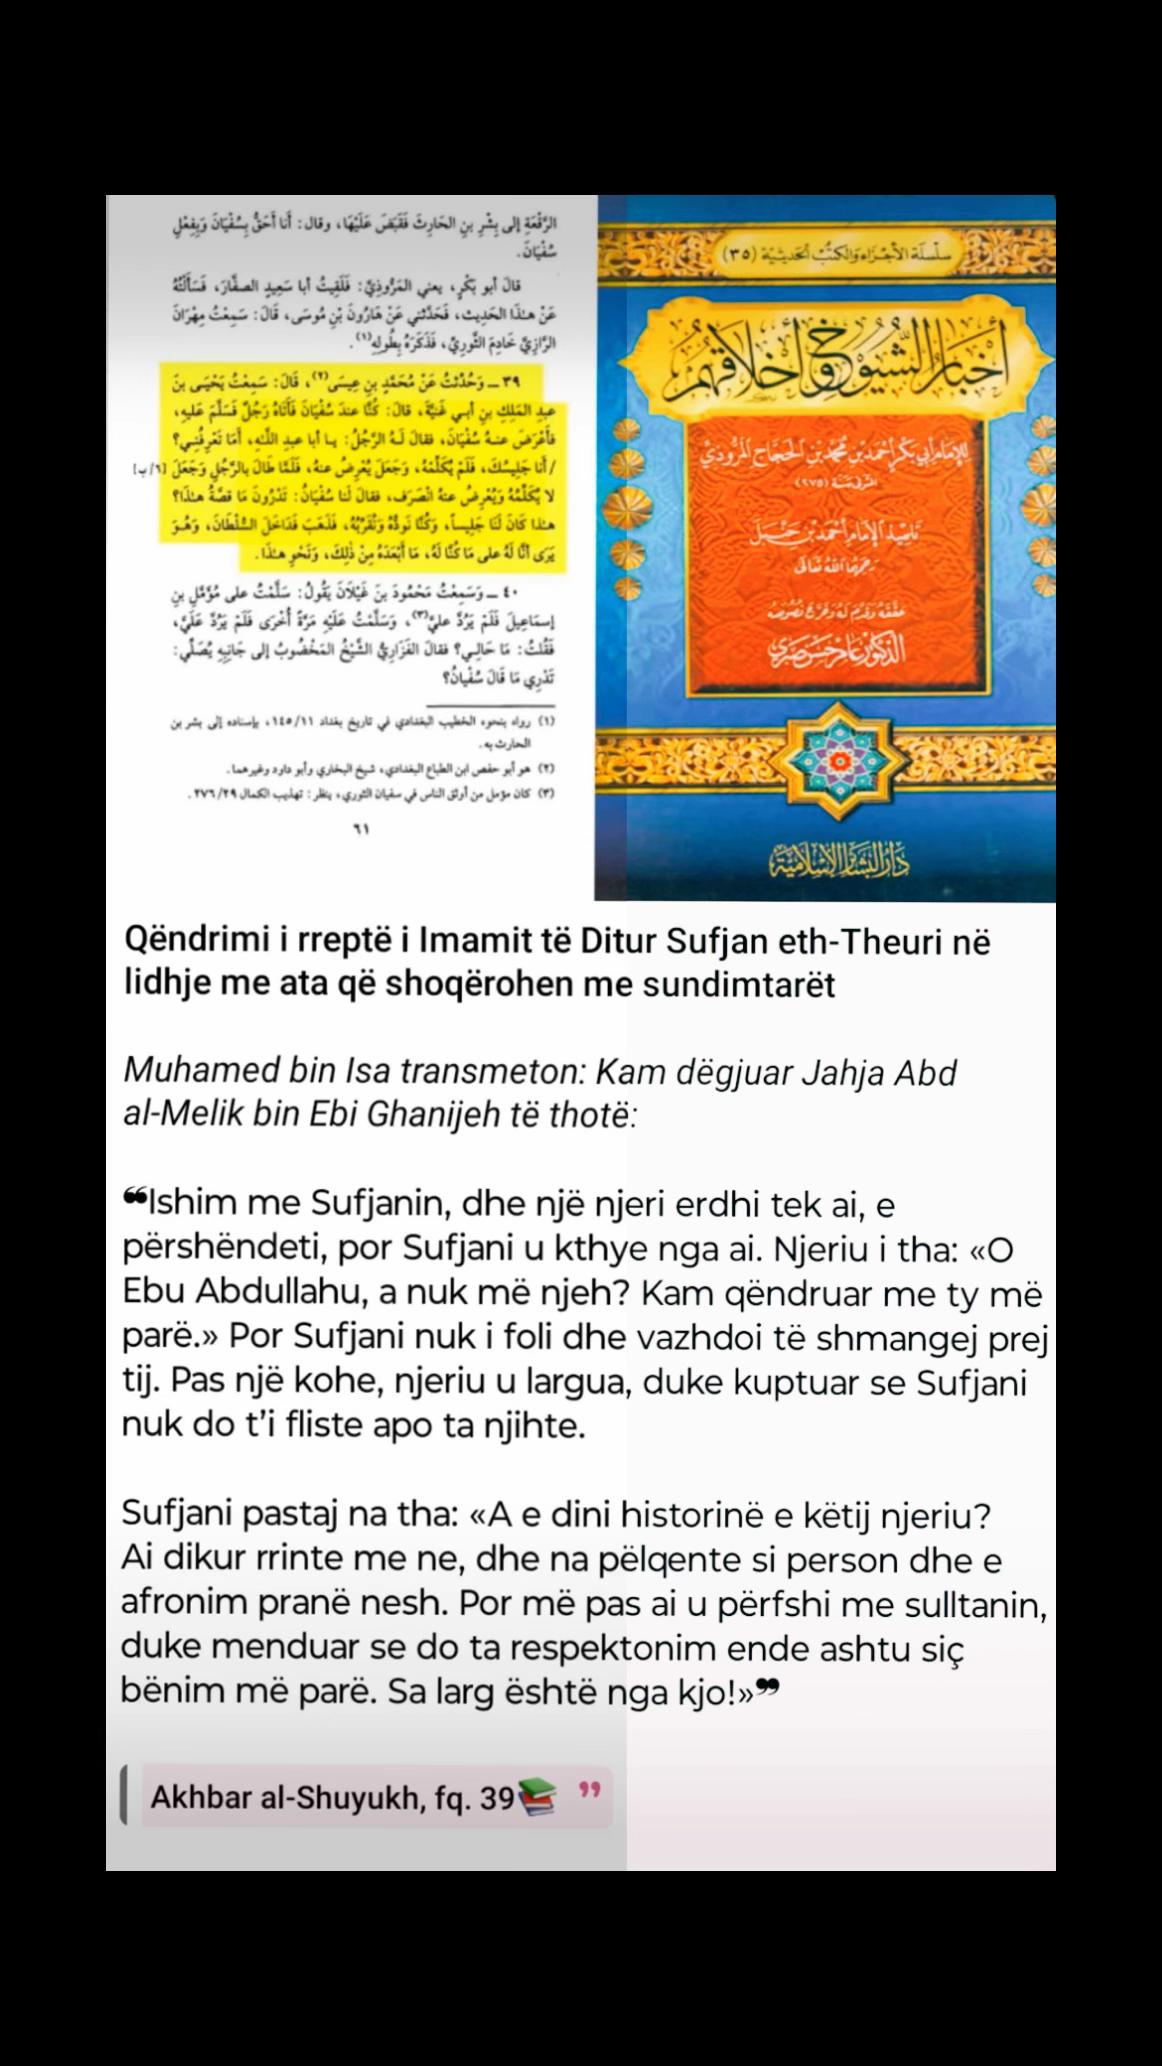 الرُّقْعَةِ إلى بِشْرِ بنِ الحَارِثِ فَقَبَضَ عَلَيْهَا، وقال: أَنا أَحَقُّ بِسُفْيَانَ وَبِفِعْلِ
سُفْيَانَ.
قالَ أبو بَكْرٍ، يعني المَرُّوذِيَّ: فَلَقِيتُ أبا سَعِيدٍ الصفَّارَ، فَسَأَلْتُهُ
عَنْ هـٰذَا الحَدِيثِ، فَحَدَّثَنِي عَنْ هَارُونَ بْنِ مُوسَى، قَالَ: سَمِعْتُ مِهْرَانَ
الرَّازِيَّ خَادِمَ الثَّوْرِيِّ، فَذَكَرَهُ بِطُولِهِ(١).
٣٩ ــ وَحُدِّثْتُ عَنْ مُحَمَّدِ بنِ عِيسَى(٢)، قَالَ: سَمِعْتُ يَحْيَـى بنَ
عبدِ المَلِكِ بنِ أبـي غَنِيَّةَ، قالَ: كُنَّا عندَ سُفْيَانَ فَأَتَاهُ رَجُلٌ فَسَلَّمَ عَليهِ،
فأَعْرَضَ عنـهُ سُفْيَانُ، فقالَ لَـهُ الرَّجُلُ: يـا أبا عبدِ اللَّـهِ، أَمَا تَعْرِفُنِـي؟
/ أَنا جَلِيسُكَ، فَلَمْ يُكَلِّمْهُ، وَجَعَلَ يُعْرِضُ عنهُ، فَلَمَّا طَالَ بالرَّجُلِ وَجَعَلَ [٦/ب]
لا يُكَلِّمُهُ وَيُعْرِضُ عنهُ انْصَرَفَ، فقالَ لَنا سُفْيَانُ: تَدْرُونَ مَا قِصَّةُ هـٰذَا؟
هـٰذا كَانَ لَنَا جَلِيساً، وَكُنَّا نَودُّهُ وَنُقَرِّبُهُ، فَذَهَبَ فَدَاخَلَ السُّلْطَانَ، وَهُـوَ
يَرَى أنَّا لَهُ على مَا كُنَّا لَهُ، مَا أَبْعَدَهُ مِنْ ذَلِكَ، وَنَحْوِ هـٰذَا.
٤٠ ــ وَسَمِعْتُ مَحْمُودَ بنَ غَيْلَانَ يَقُولُ: سَلَّمْتُ على مُؤَمَّلِ بنِ
إسمَاعِيلَ فَلَمْ يَرُدَّ عليَّ(٣)، وَسَلَّمْتُ عَلَيْهِ مَرَّةً أُخْرَى فَلَمْ يَرُدَّ عَلَيَّ،
فَقُلْتُ: مَا حَالِـي؟ فقالَ الفَزَارِيُّ الشَّيْخُ المَخْضُوبُ إلى جَانِبِهِ يُصَلِّي:
تَدْرِي مَا قَالَ سُفْيانُ؟
(١) رواه بنحوه الخطيب البغدادي في تاريخ بغداد ١٤٥/١١، بإسناده إلى بشر بن
الحارث به.
(٢) هو أبو حفص ابن الطباع البغدادي، شيخ البخاري وأبو داود وغيرهما.
(٣) كان مؤمل من أوثق الناس في سفيان الثوري، ينظر: تهذيب الكمال ٢٧٦/٢٩.
٦١
سلسلة الأجزاء والكتب الحديثية (٣٥)
أخبار الشيوخ وأخلاقهم
للإمام أبي بكر أحمد بن محمد بن الحجاج المروذي
المتوفى سنة (٢٧٥)
تلميذ الإمام أحمد بن حنبل
رحمهما الله تعالى
حققه وقدم له وخرج نصوصه
الدكتور عامر حسن صبري
دار البشائر الإسلامية
Qëndrimi i rreptë i Imamit të Ditur Sufjan eth-Theuri në
lidhje me ata që shoqërohen me sundimtarët
Muhamed bin Isa transmeton: Kam dëgjuar Jahja Abd
al-Melik bin Ebi Ghanijeh të thotë:
❝Ishim me Sufjanin, dhe një njeri erdhi tek ai, e
përshëndeti, por Sufjani u kthye nga ai. Njeriu i tha: «O
Ebu Abdullahu, a nuk më njeh? Kam qëndruar me ty më
parë.» Por Sufjani nuk i foli dhe vazhdoi të shmangej prej
tij. Pas një kohe, njeriu u largua, duke kuptuar se Sufjani
nuk do t’i fliste apo ta njihte.
Sufjani pastaj na tha: «A e dini historinë e këtij njeriu?
Ai dikur rrinte me ne, dhe na pëlqente si person dhe e
afronim pranë nesh. Por më pas ai u përfshi me sulltanin,
duke menduar se do ta respektonim ende ashtu siç
bënim më parë. Sa larg është nga kjo!»❞
Akhbar al-Shuyukh, fq. 39📚 ”